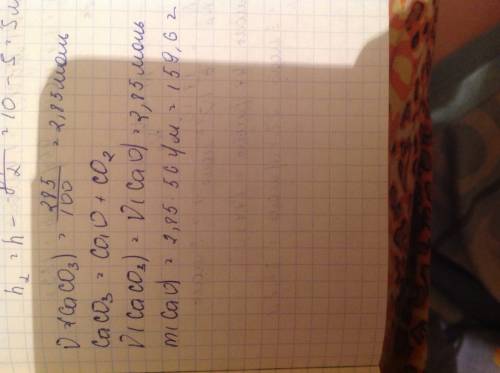 h₂ = h - = 10 - 5 = 5 м
ν(CaCO₃) = 285/100 = 2,85 моль
CaCO₃ = CaO + CO₂
ν(CaCO₃) = ν(CaO) = 2,85 моль
m(CaO) = 2,85 · 56 г/м = 159,6 г